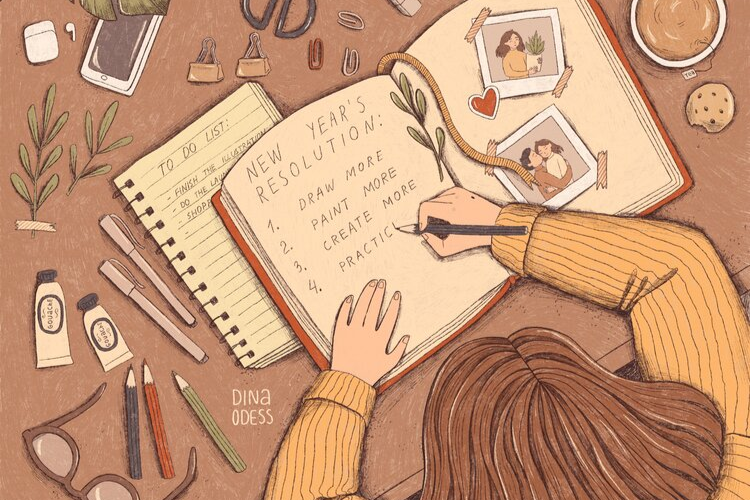 TO DO LIST:
- FINISH THE ILLUSTRATION
- DO THE
NEW YEAR'S
RESOLUTION:
1. DRAW MORE
2. PAINT MORE
3. CREATE MORE
4. PRACTIC
GOUACHE
GOUACHE
DINA
ODESS